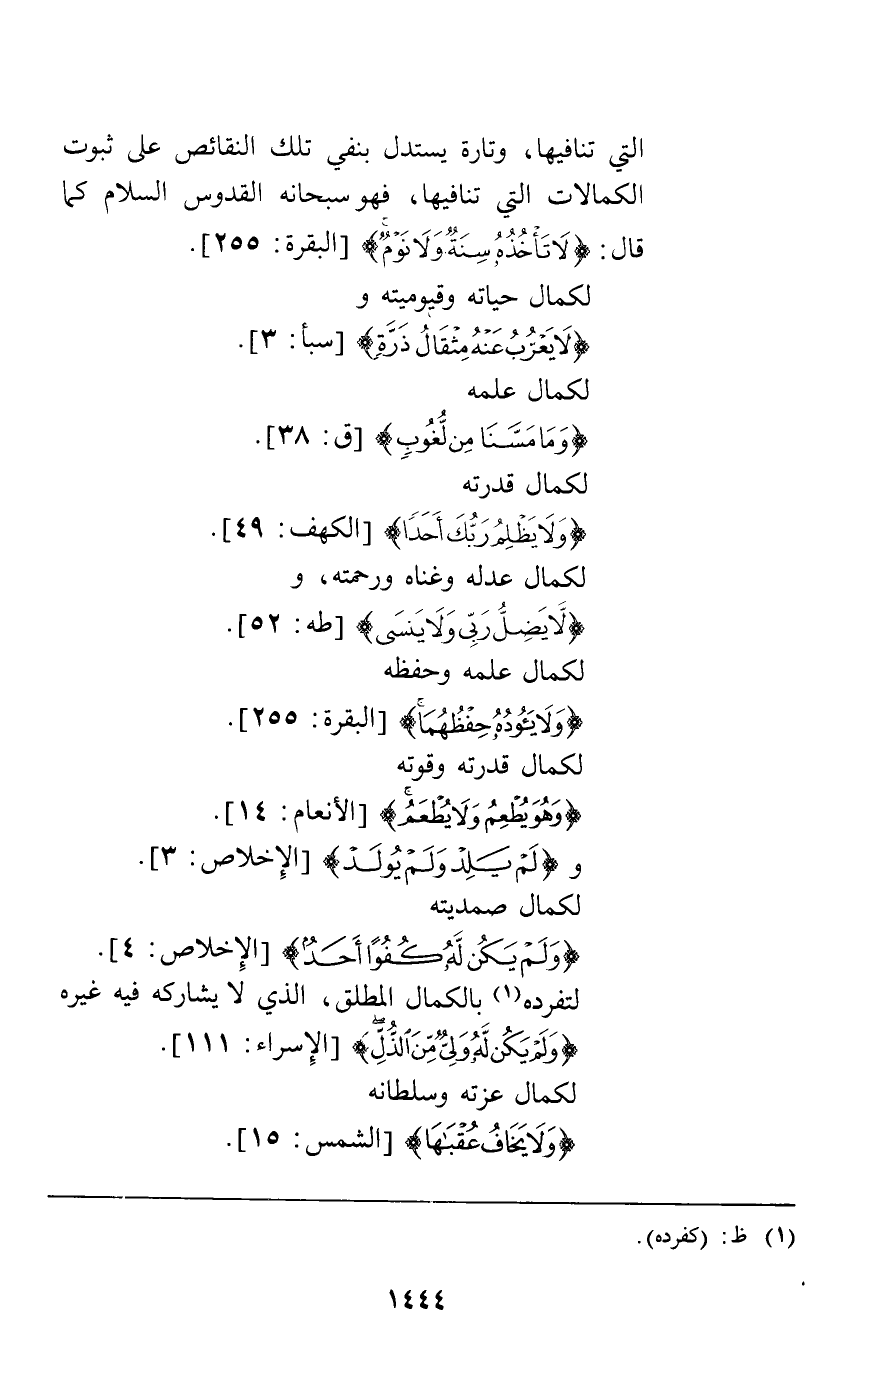 التي تنافيها، وتارة يستدل بنفي تلك النقائص على ثبوت
الكمالات التي تنافيها، فهو سبحانه القدوس السلام كما
قال: ﴿لَا تَأْخُذُهُۥ سِنَةٌ وَلَا نَوْمٌ ۚ﴾ [البقرة: ٢٥٥].
لكمال حياته وقيوميته و
﴿لَا يَعْزُبُ عَنْهُ مِثْقَالُ ذَرَّةٍ﴾ [سبأ: ٣].
لكمال علمه
﴿وَمَا مَسَّنَا مِن لُّغُوبٍ﴾ [ق: ٣٨].
لكمال قدرته
﴿وَلَا يَظْلِمُ رَبُّكَ أَحَدًا﴾ [الكهف: ٤٩].
لكمال عدله وغناه ورحمته، و
﴿لَّا يَضِلُّ رَبِّى وَلَا يَنسَى﴾ [طه: ٥٢].
لكمال علمه وحفظه
﴿وَلَا يَـُٔودُهُۥ حِفْظُهُمَا ۚ﴾ [البقرة: ٢٥٥].
لكمال قدرته وقوته
﴿وَهُوَ يُطْعِمُ وَلَا يُطْعَمُ ۗ﴾ [الأنعام: ١٤].
و ﴿لَمْ يَلِدْ وَلَمْ يُولَدْ﴾ [الإخلاص: ٣].
لكمال صمديته
﴿وَلَمْ يَكُن لَّهُۥ كُفُوًا أَحَدٌ﴾ [الإخلاص: ٤].
لتفرده(١) بالكمال المطلق، الذي لا يشاركه فيه غيره
﴿وَلَمْ يَكُن لَّهُۥ وَلِىٌّ مِّنَ ٱلذُّلِّ ۖ﴾ [الإسراء: ١١١].
لكمال عزته وسلطانه
﴿وَلَا يَخَافُ عُقْبَٰهَا﴾ [الشمس: ١٥].
(١) ظ: (كفرده).
١٤٤٤